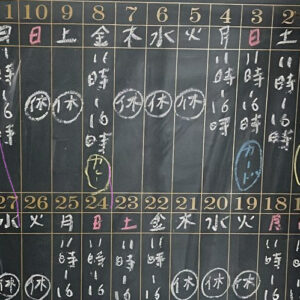 10 9 8 7 6 5 4 3 2
日 土 金 木 水 火 月 日 土
11時〜16時 休 休 11時〜16時 休 休 休 11時〜16時 11時〜16時 11時〜16時
27 26 25 24 23 22 21 20 19 18
水 火 月 日 土 金 木 水 火 月
休 休 11時〜16 11時〜16 11時〜16 11時〜16 休 休 休 11時〜16